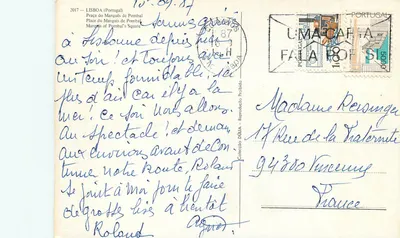 15.09.87
2017 - LISBOA (Portugal)
Praça do Marquês de Pombal
Place du Marquis de Pombal
Marquis of Pombal's Square
Nous sommes
à Lisbonne depuis hier
au soir et toujours avec
un temps formidable
plus d'air car il y a la
mer. Ce soir nous allons
au spectacle et demain
aux environs avant de con-
tinuer notre route, Roland
se joint à moi pour te faire
de grosses bises à bientôt
Roland
PORTUGAL
UMA CARTA
FALA POR SI
Madame Reisinger
17 Rue de la Fraternité
94300 Vincennes
France